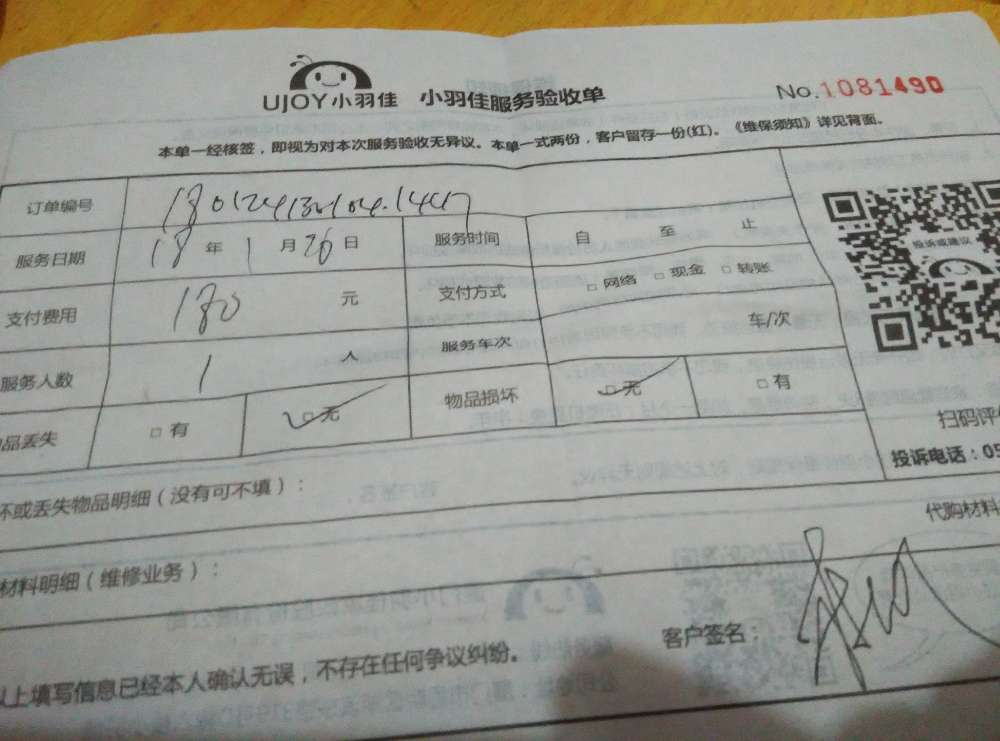 UJOY小羽佳 小羽佳服务验收单 No.1081490
本单一经核签，即视为对本次服务验收无异议。本单一式两份，客户留存一份(红)。《维保须知》详见背面。
订单编号
服务日期 18 年 1 月 26 日 服务时间 自 至 止
支付费用 180 元 支付方式 □ 网络 □ 现金 □ 转账
服务人数 1 人 服务车次 车/次
品丢失 □ 有 □ 无 物品损坏 □ 无 □ 有
投诉或建议
扫码评
投诉电话：05
坏或丢失物品明细（没有可不填）：
代购材料
材料明细（维修业务）：
客户签名：
以上填写信息已经本人确认无误，不存在任何争议纠纷。